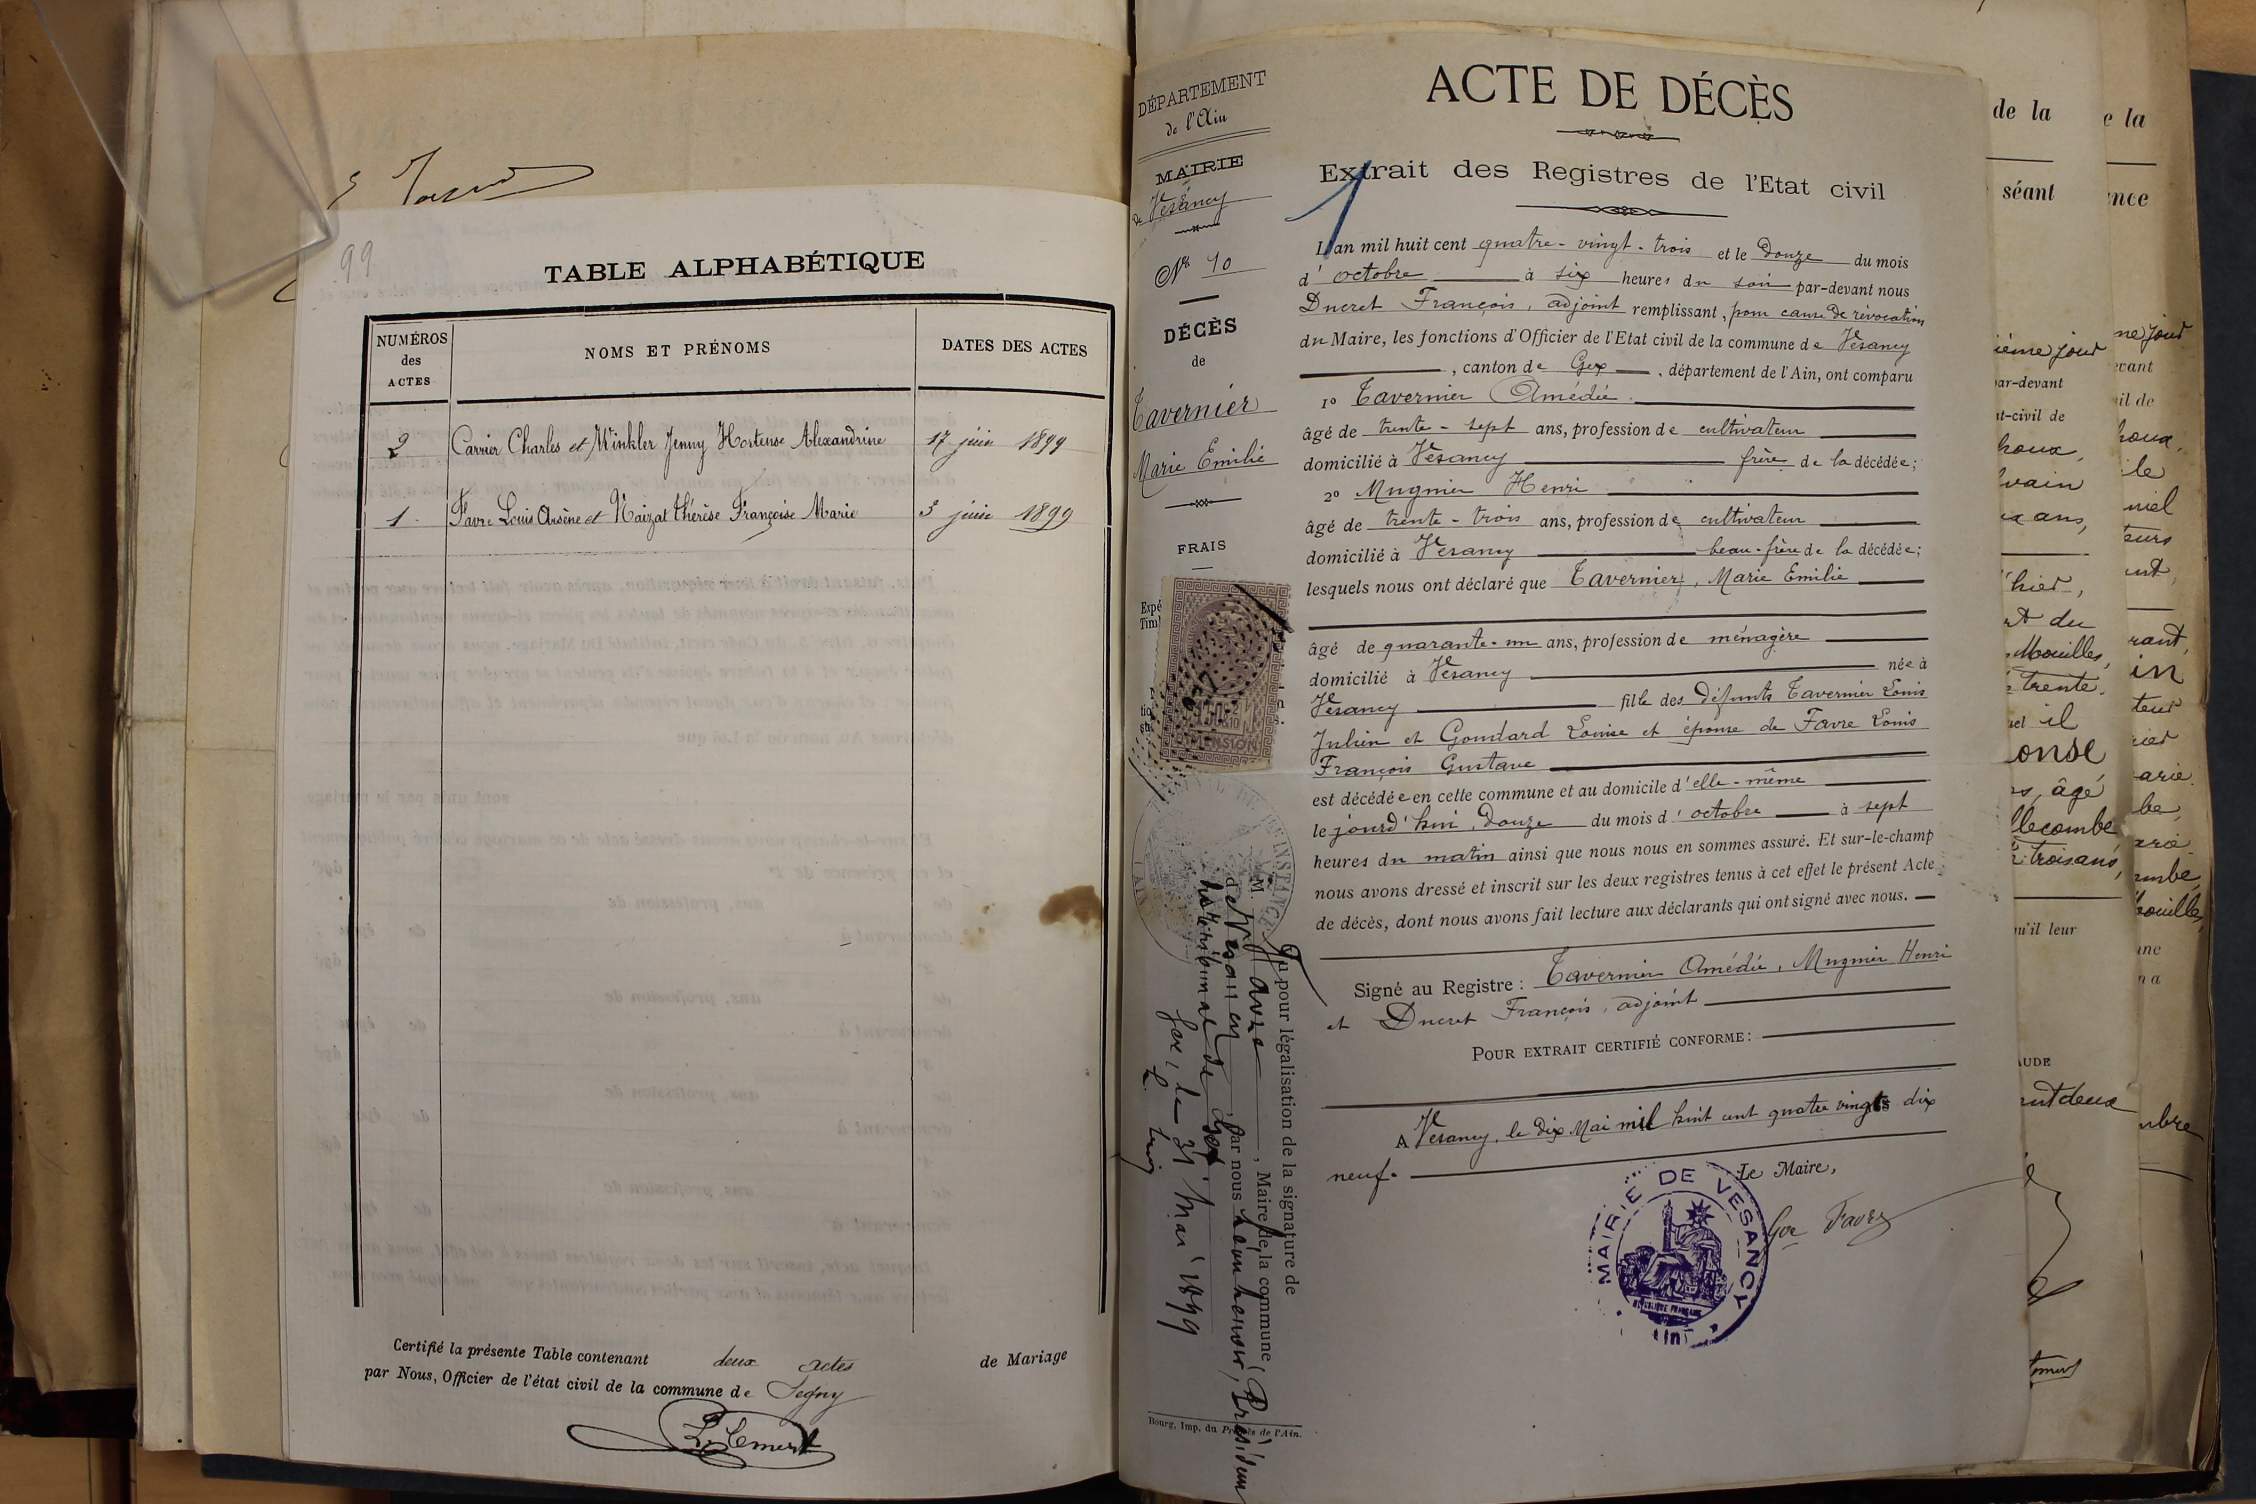 99
TABLE ALPHABÉTIQUE
NUMÉROS
des
ACTES
NOMS ET PRÉNOMS
DATES DES ACTES
2 Carrier Charles et Winkler Jenny Hortense Alexandrine 17 juin 1899
1 Favre Louis Arsène et Naizat thérèse Françoise Marie 3 juin 1899
Certifié la présente Table contenant deux actes de Mariage
par Nous, Officier de l'état civil de la commune de Segny
DÉPARTEMENT
de l'Ain
MAIRIE
De Vesancy
No 10
DÉCÈS
de
Tavernier
Marie Emilie
FRAIS
ACTE DE DÉCÈS
Extrait des Registres de l'Etat civil
1
L'an mil huit cent quatre-vingt-trois et le Douze du mois
d'octobre à six heures du soir par-devant nous
Ducret François, adjoint remplissant, pour cause de révocation
du Maire, les fonctions d'Officier de l'Etat civil de la commune de Vesancy
, canton de Gex, département de l'Ain, ont comparu
1o Tavernier Amédée
âgé de trente-sept ans, profession de cultivateur
domicilié à Vesancy frère de la décédée;
2o Mugnier Henri
âgé de trente-trois ans, profession de cultivateur
domicilié à Vesancy beau-frère de la décédée;
lesquels nous ont déclaré que Tavernier, Marie Emilie
âgé de quarante-un ans, profession de ménagère
domicilié à Vesancy née à
Vesancy fille des défunts Tavernier Louis
Julien et Goudard Louise et épouse de Favre Louis
François Gustave
est décédée en cette commune et au domicile d'elle-même
le jourd'hui, Douze du mois d'octobre à sept
heures du matin ainsi que nous nous en sommes assuré. Et sur-le-champ
nous avons dressé et inscrit sur les deux registres tenus à cet effet le présent Acte
de décès, dont nous avons fait lecture aux déclarants qui ont signé avec nous.
Signé au Registre : Tavernier Amédée, Mugnier Henri
et Ducret François, adjoint
POUR EXTRAIT CERTIFIÉ CONFORME :
A Vesancy, le dix Mai mil huit cent quatre vingts dix
neuf.
Le Maire,
Gve Favre
MAIRIE DE VESANCY
RÉPUBLIQUE FRANÇAISE
(Ain)
Vu pour légalisation de la signature de
M. Favre, Maire de la commune
de Vesancy, par nous
du tribunal de Gex
Gex, le 31 Mai 1899
Bourg, Imp. du Progrès de l'Ain.
de la
séant
par-devant
trente
il
âgé
qu'il leur
e la